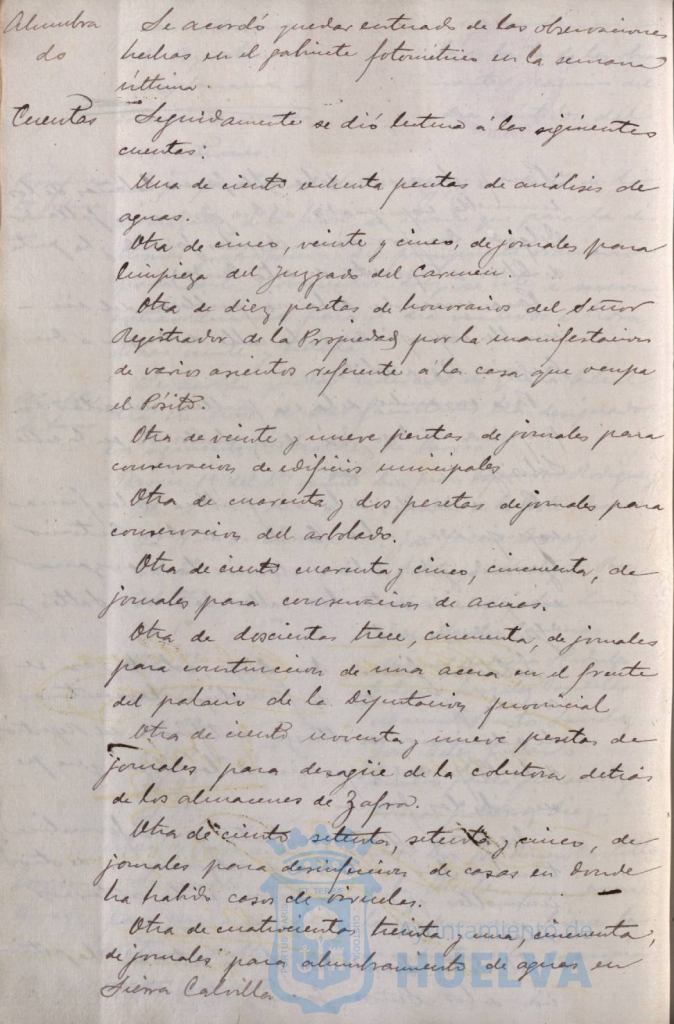 Alumbra
do
Se acordó quedar enterado de las observaciones
hechas en el gabinete fotométrico en la semana
última.
Cuentas
Seguidamente se dió lectura á las siguientes
cuentas:
Una de ciento ochenta pesetas de análisis de
aguas.
Otra de cinco, veinte y cinco, de jornales para
limpieza del Juzgado del Carmen.
Otra de diez pesetas de honorarios del Señor
Registrador de la Propiedad por la manifestacion
de varios asientos referente á la casa que ocupa
el Pósito.
Otra de veinte y nueve pesetas de jornales para
conservacion de edificios municipales
Otra de cuarenta y dos pesetas de jornales para
conservacion del arbolado.
Otra de ciento cuarenta y cinco, cincuenta, de
jornales para conservacion de aceras.
Otra de doscientas trece, cincuenta, de jornales
para construccion de una acera en el frente
del palacio de la Diputacion provincial
Otra de ciento noventa y nueve pesetas de
jornales para desagüe de la colectora detrás
de los almacenes de Zafra.
Otra de ciento setenta, setenta y cinco, de
jornales para desinfeccion de casas en donde
ha habido casos de viruelas.
Otra de cuatrocientas treinta y una, cincuenta,
de jornales para alumbramiento de aguas en
Sierra Calvilla.
Ayuntamiento de
HUELVA